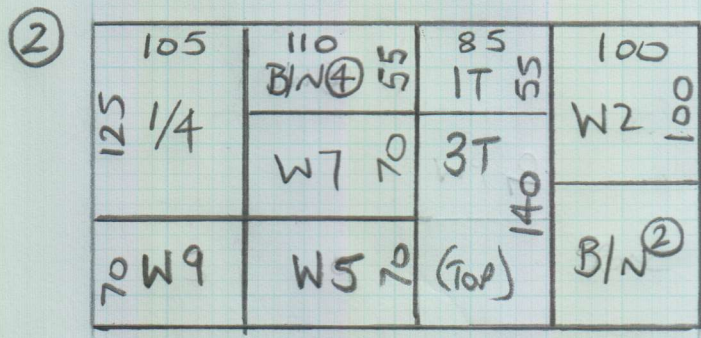 ②
105
125
1/4
110
B/N④
55
85
1T
55
100
W2
100
W7
70
3T
140
(TOP)
70
W9
W5
70
B/N②